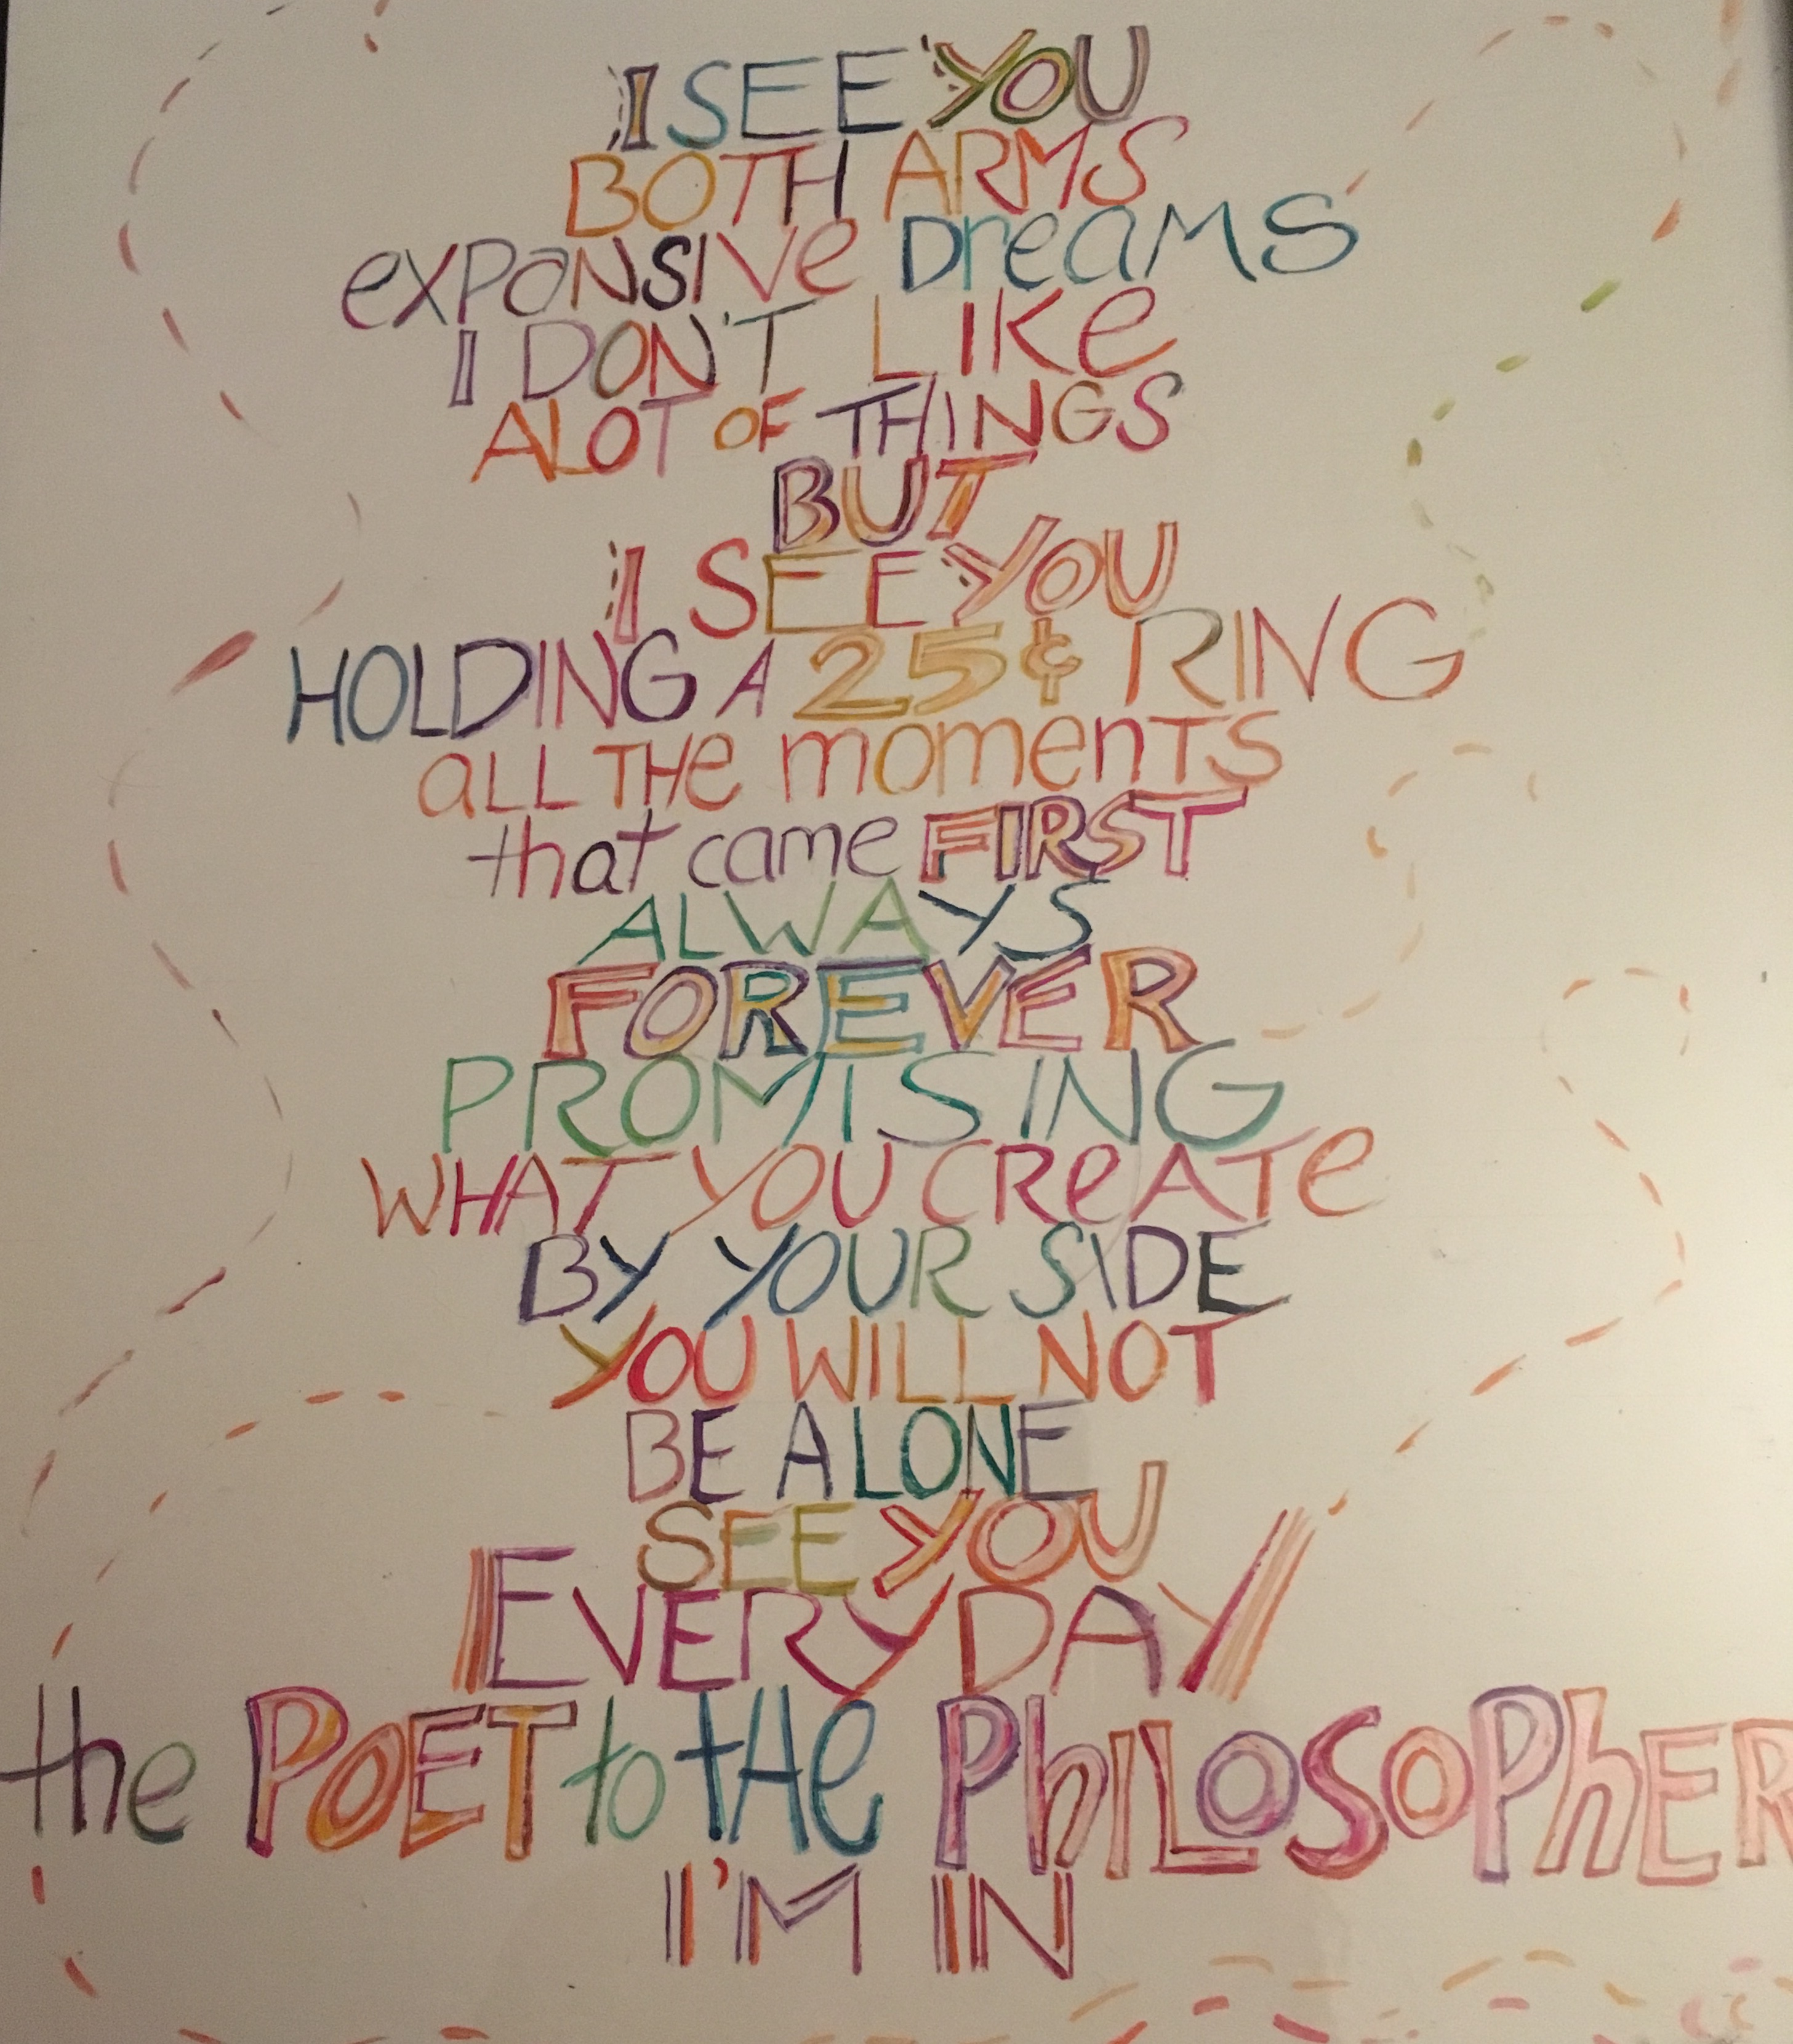 I SEE YOU
BOTH ARMS
exPaNSIVe DreaMS
I DON'T LIKe
ALOT OF THINGS
BUT
I SEE YOU
HOLDING A 25¢ RING
aLL THe momenTS
that came FIRST
ALWAYS
FOREVER
PROMISING
WHAT YOU CReATe
BY YOUR SIDE
YOU WILL NOT
BE ALONE
SEE YOU
EVERYDAY
the POET to tHe PhILOSOPhER
I'M IN